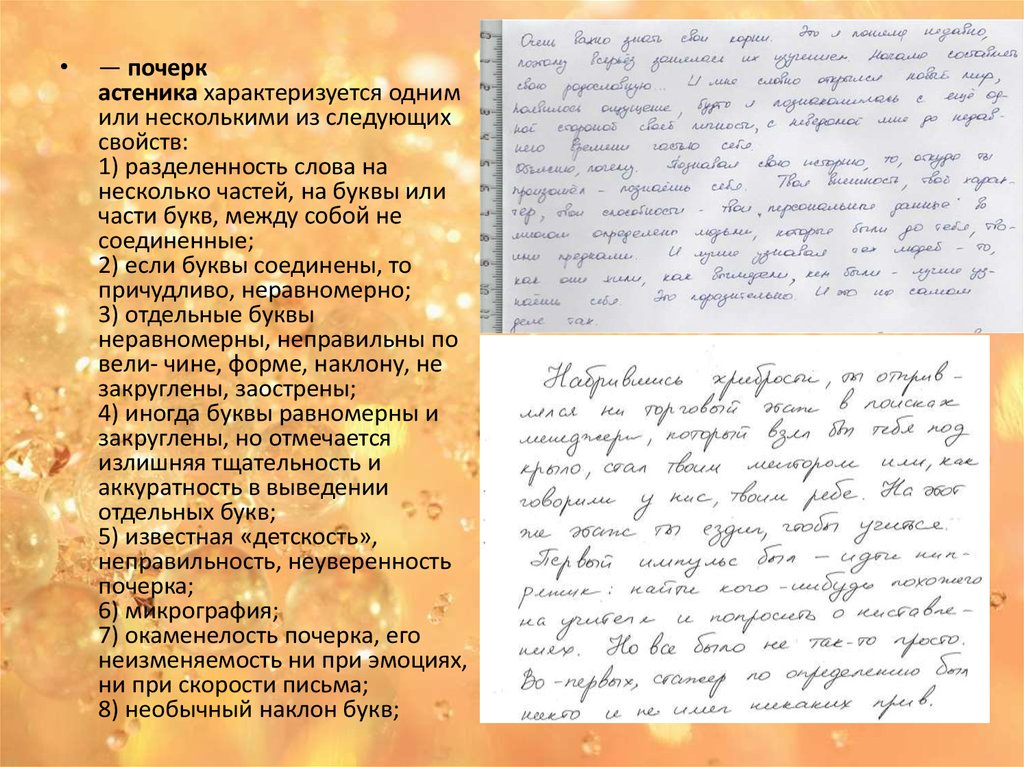 • — почерк
астеника характеризуется одним
или несколькими из следующих
свойств:
1) разделенность слова на
несколько частей, на буквы или
части букв, между собой не
соединенные;
2) если буквы соединены, то
причудливо, неравномерно;
3) отдельные буквы
неравномерны, неправильны по
вели- чине, форме, наклону, не
закруглены, заострены;
4) иногда буквы равномерны и
закруглены, но отмечается
излишняя тщательность и
аккуратность в выведении
отдельных букв;
5) известная «детскость»,
неправильность, неуверенность
почерка;
6) микрография;
7) окаменелость почерка, его
неизменяемость ни при эмоциях,
ни при скорости письма;
8) необычный наклон букв;
Очень важно знать свои корни. Это я поняла недавно,
поэтому всерьёз занялась их изучением. Начала составлять
свою родословную... И мне словно открылся новый мир,
появилось ощущение, будто я познакомилась с ещё од-
ной стороной своей личности, с неведомой мне до недав-
него времени частью себя.
Объясню, почему. Познавая свою историю, то, откуда ты
произошёл - познаёшь себя. Твоя внешность, твой харак-
тер, твои способности - твои "персональные данные" во
многом определены людьми, которые были до тебя, тво-
ими предками. И лучше узнавая тех людей - то,
как они жили, как выглядели, кем были - лучше уз-
наёшь себя. Это поразительно. И это на самом
деле так.
Набравшись храбрости, ты отправ-
лялся на торговый этаж в поисках
менеджера, который взял бы тебя под
крыло, стал твоим ментором или, как
говорили у нас, твоим ребе. На этот
же этаж ты ездил, чтобы учиться.
Первый импульс был — идти нап-
рямик: найти кого-нибудь похожего
на учителя и попросить о наставле-
ниях. Но все было не так-то просто.
Во-первых, стажер по определению был
никто и не имел никаких прав.